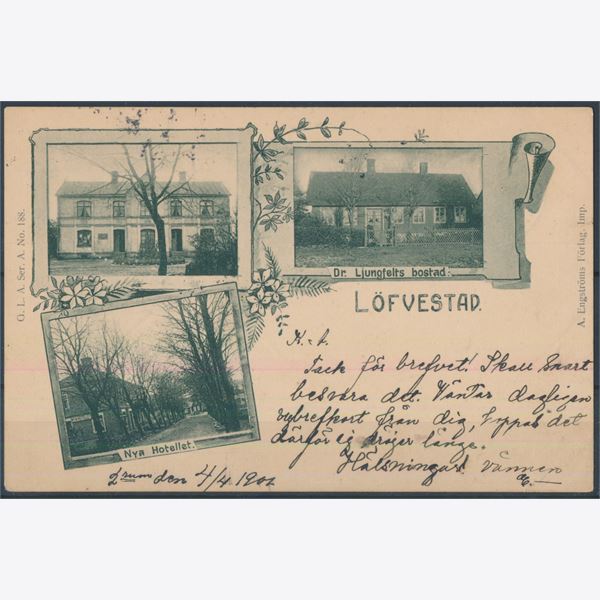 G. L. A. Ser. A. No. 188.
Dr. Ljungfelts bostad.
A. Engströms Förlag, Imp.
LÖFVESTAD.
Nya Hotellet.
K. k.
Tack för brefvet! Skall snart
besvara det. Väntar dagligen
vybrefkort från dig, hoppas det
därför ej dröjer länge.
Hälsningar vännen
den 4/4 1902